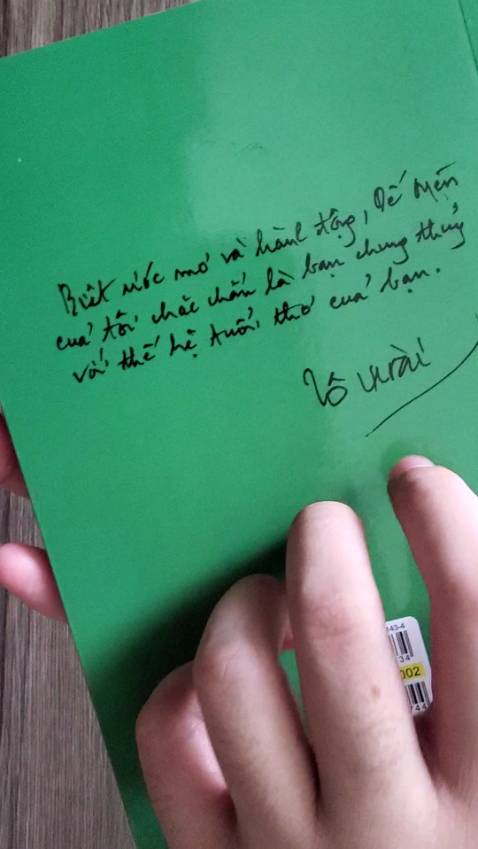 Biết ước mơ và hành động, Dế Mèn
của tôi chắc chắn là bạn chung thủy
với thế hệ tuổi thơ của bạn.
Tô Hoài
143-4
34
002
744